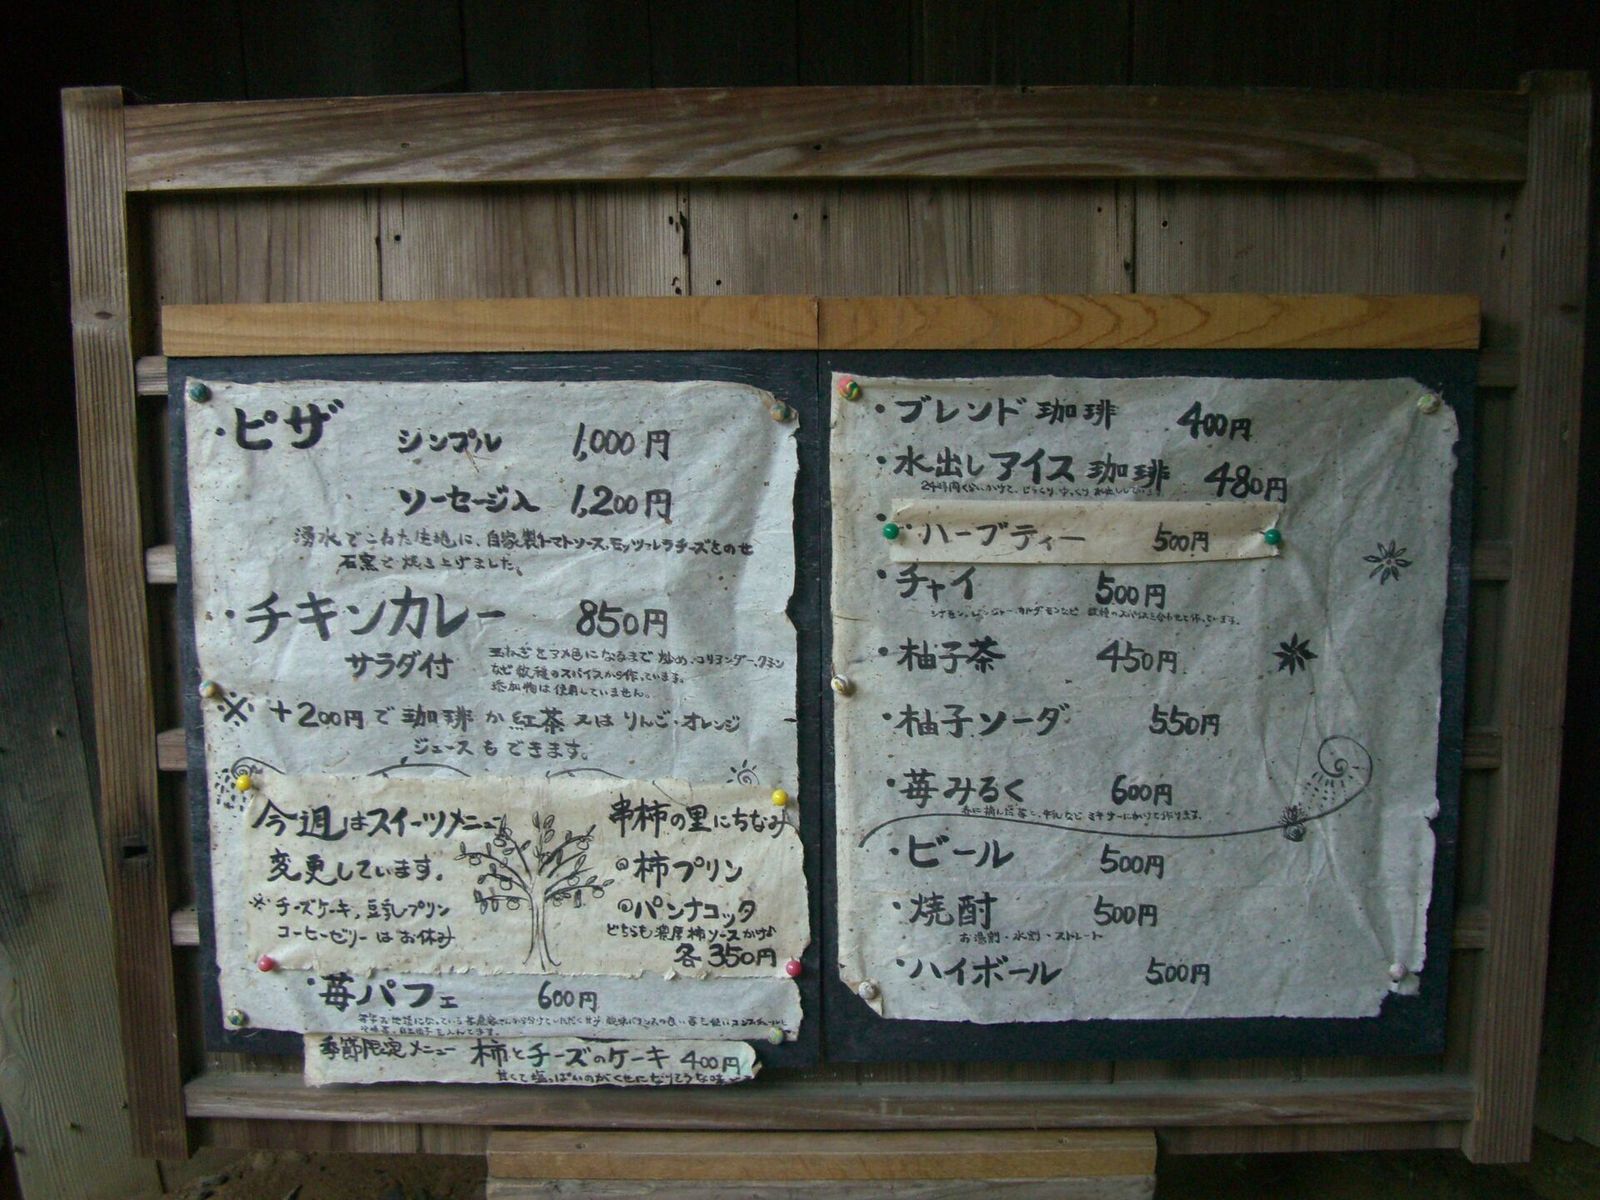 ・ピザ シンプル 1,000円
ソーセージ入 1,200円
湧水でこねた生地に、自家製トマトソース、モッツァレラチーズをのせ
石窯で焼き上げました。
・チキンカレー 850円
サラダ付
玉ねぎをアメ色になるまで炒め、コリアンダー、クミン
など数種のスパイスから作っています。
添加物は使用していません。
※ +200円で珈琲か紅茶又はりんご・オレンジ
ジュースもできます。
今週はスイーツメニュー
変更しています。
※チーズケーキ、豆乳プリン
コーヒーゼリーはお休み
串柿の里にちなみ
◎柿プリン
◎パンナコッタ
どちらも濃厚柿ソースかけ♪
各350円
・苺パフェ 600円
季節限定メニュー 柿とチーズのケーキ 400円
甘くて塩っぱいのがくせになりそうな味
・ブレンド珈琲 400円
・水出しアイス珈琲 480円
24時間くらいかけて、じっくりゆっくり水出ししています
・ハーブティー 500円
・チャイ 500円
シナモン、ジンジャー、カルダモンなど 数種のスパイスを合わせて作っています。
・柚子茶 450円
・柚子ソーダ 550円
・苺みるく 600円
春に摘んだ苺と、牛乳など ミキサーにかけて作ります。
・ビール 500円
・焼酎 500円
お湯割・水割・ストレート
・ハイボール 500円